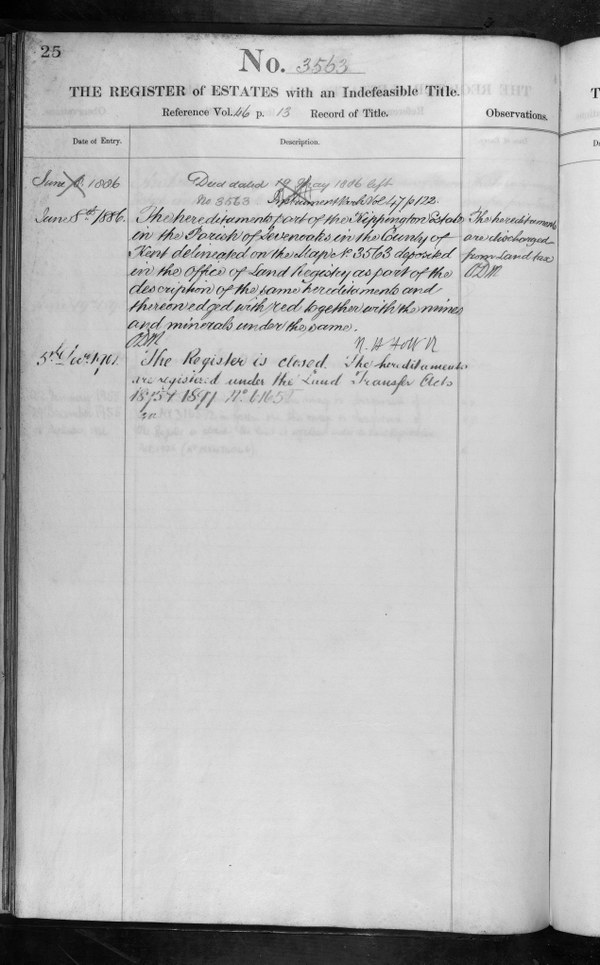 25
No. 3563
THE REGISTER of ESTATES with an Indefeasible Title.
Reference Vol. 46 p. 13 Record of Title.
Observations.
Date of Entry.
Description.
June 1886
Deed dated 19 May 1886 left
No 3563 Instrument Book Vol. 47 p 122.
June 8th 1886.
The hereditaments part of the Kippington Estate
in the Parish of Sevenoaks in the County of
Kent delineated on the Map No. 3563 deposited
in the Office of Land Registry as part of the
description of the same hereditaments and
thereon edged with red together with the mines
and minerals under the same.
The hereditaments
are discharged
from Land tax
5th 1901.
The Register is closed. The hereditaments
are registered under the Land Transfer Acts
1875 & 1897 No.